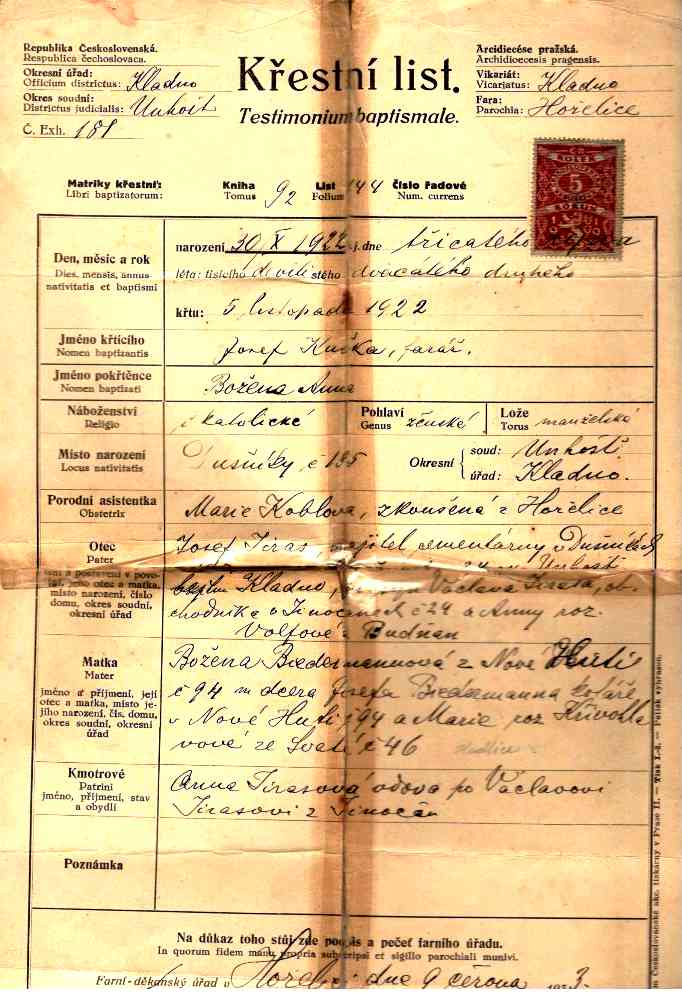 Republika Československá.
Respublica čechoslovaca.
Okresní úřad:
Officium districtus: Kladno
Okres soudní:
Districtus judicialis: Unhošť
Č. Exh. 181
Křestní list.
Testimonium baptismale.
Arcidiecése pražská.
Archidioecesis pragensis.
Vikariát:
Vicariatus: Kladno
Fara:
Parochia: Hořelice
Matriky křestní: Kniha 92 List 144 Číslo řadové
Libri baptizatorum: Tomus Folium Num. currens
5
Den, měsíc a rok
Dies, mensis, annus
nativitatis et baptismi
narození 30 X 1922 j. dne třicátého října
léta: tisícího devítistého dvacátého druhého
křtu: 5 listopadu 1922
Jméno křtícího
Nomen baptizantis
Josef Kuška, farář.
Jméno pokřtěnce
Nomen baptizati
Božena Anna
Náboženství
Religio
katolické
Pohlaví
Genus ženské
Lože
Torus manželské
Místo narození
Locus nativitatis
Dušníky č 195
Okresní
soud: Unhošť.
úřad: Kladno.
Porodní asistentka
Obstetrix
Marie Koblova, zkoušená z Hořelice
Otec
Pater
jméno, místo narození, číslo
domu, okres soudní,
okresní úřad
Josef Jiras, majitel cementárny v Dušníkách
Kladno, Václava Jirasa, ob-
chodníka v Jinočanech č 24 a Anny roz.
Volfové z Budňan
Matka
Mater
jméno a příjmení, její
otec a matka, místo je-
jího narození, čís. domu,
okres soudní, okresní
úřad
Božena Biedermannová z Nové Huti
č 94 dcera Josefa Biedermanna koláře
v Nové Huti 94 a Marie roz Křivohla
vové ze Svaté č 46 Hudlice
Kmotrové
Patrini
jméno, příjmení, stav
a obydlí
Anna Jirasová vdova po Václavovi
Jirasovi z Jinočan
Poznámka
Na důkaz toho stůj zde podpis a pečeť farního úřadu.
In quorum fidem manu propria subscripsi et sigillo parochiali munivi.
Farní-děkanský úřad v dne 9 června 3.